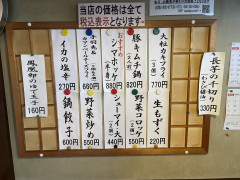 当店の価格は全て
税込表示となります
大粒カキフライ
(3個)
770円
豚キムチ鍋
820円
おすすめ
シマホッケ
880円
イカの塩辛
270円
長芋の千切り
(わさび醤油)
330円
鳳凰卵のゆで玉子
160円
生もずく
220円
野菜コロッケ
(2個)
550円
シューマイ
440円
野菜炒め
550円
鍋餃子
600円
660円